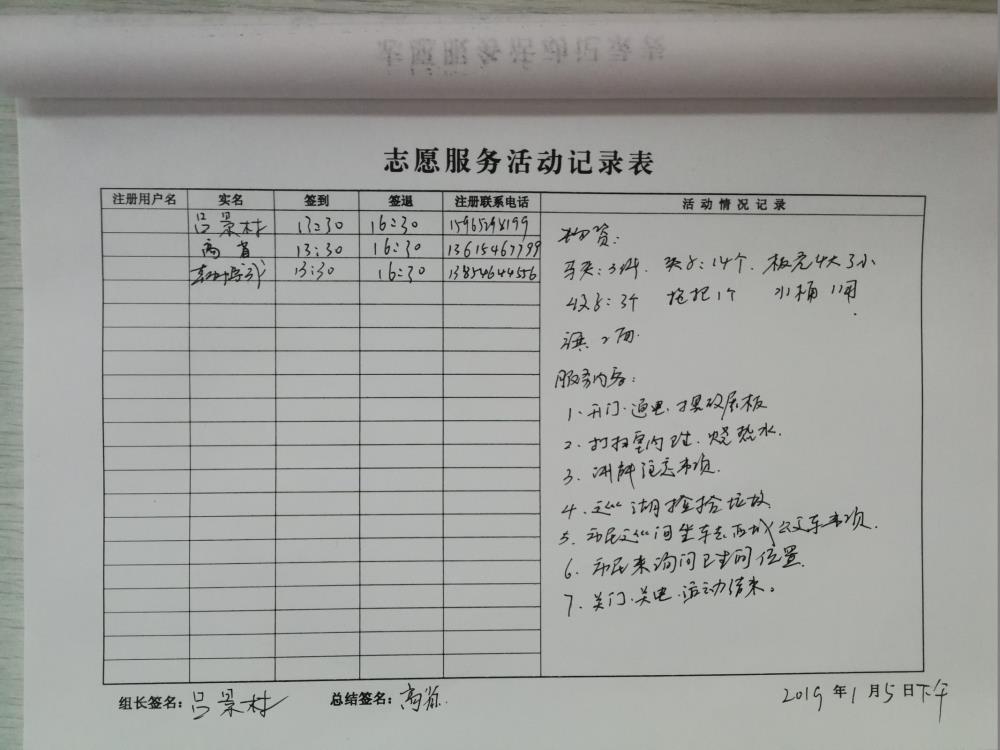 志愿服务活动记录表
注册用户名 实名 签到 签退 注册联系电话 活动情况记录
吕景村 13:30 16:30 15965298199
高省 13:30 16:30 13615467799
13:30 16:30 13854644556
物资:
马夹:3件. 夹子:14个. 板凳4大3小
4X子:3个 拖把1个 水桶1个
旗:2面.
服务内容:
1、开门.通电.摆放展板
2、打扫室内卫生.烧热水.
3、讲解注意事项.
4、巡湖捡拾垃圾
5、市民过问坐车去西城公交车事项.
6、市民来询问卫生间位置.
7、关门.关电.活动结束。
组长签名: 吕景村 总结签名: 高省. 2019年1月5日下午